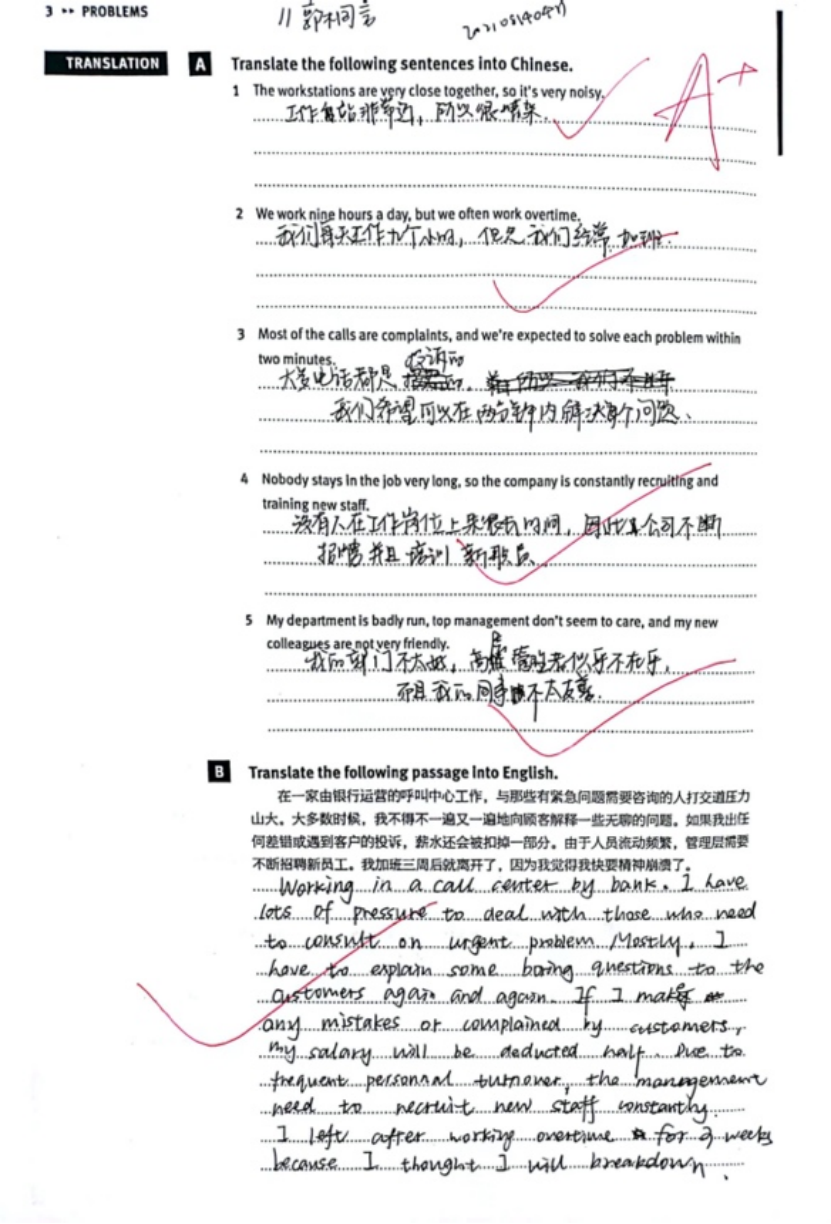 3 ▸▸ PROBLEMS
11 郭桐言
TRANSLATION A Translate the following sentences into Chinese.
A+
1 The workstations are very close together, so it's very noisy.
工作台站非常近，所以很嘈杂.
2 We work nine hours a day, but we often work overtime.
我们每天工作九个小时，但是我们经常加班.
3 Most of the calls are complaints, and we're expected to solve each problem within
two minutes.
投诉的
大多电话都是
我们希望可以在两分钟内解决每个问题.
4 Nobody stays in the job very long, so the company is constantly recruiting and
training new staff.
没有人在工作岗位上呆很长时间，因此公司不断
招聘并且培训新职员.
5 My department is badly run, top management don't seem to care, and my new
colleagues are not very friendly.
我的部门不太好，高层管理者似乎不在乎，
而且我的同事不太友善.
B Translate the following passage into English.
在一家由银行运营的呼叫中心工作，与那些有紧急问题需要咨询的人打交道压力
山大。大多数时候，我不得不一遍又一遍地向顾客解释一些无聊的问题。如果我出任
何差错或遇到客户的投诉，薪水还会被扣掉一部分。由于人员流动频繁，管理层需要
不断招聘新员工。我加班三周后就离开了，因为我觉得我快要精神崩溃了。
Working in a call center by bank. I have
lots of pressure to deal with those who need
to consult on urgent problem. Mostly, I
have to explain some boring questions to the
customers again and again. If I make
any mistakes or complained by customers,
my salary will be deducted half. Due to
frequent personnal turnover, the management
need to recruit new staff constanthy.
I left after working overtime for 3 weeks
because I thought I will breakdown.